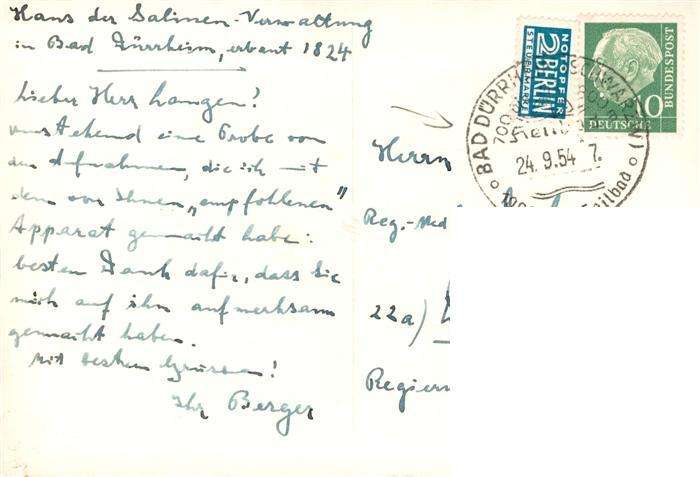 Haus der Salinen-Verwaltung
in Bad Dürrheim, erbaut 1824
Lieber Herr Langen!
umstehend eine Probe von
den Aufnahmen, die ich mit
dem von Ihnen „empfohlenen"
Apparat gemacht habe:
besten Dank dafür, dass Sie
mich auf ihn aufmerksam
gemacht haben.
Mit besten Grüssen!
Ihr Berger
NOTOPFER
2 BERLIN
STEUERMARKE
DEUTSCHE
BUNDESPOST
BAD DÜRRH
24.9.54 7.
Heilbad
Herrn
Reg.-Med
22a)
Regier